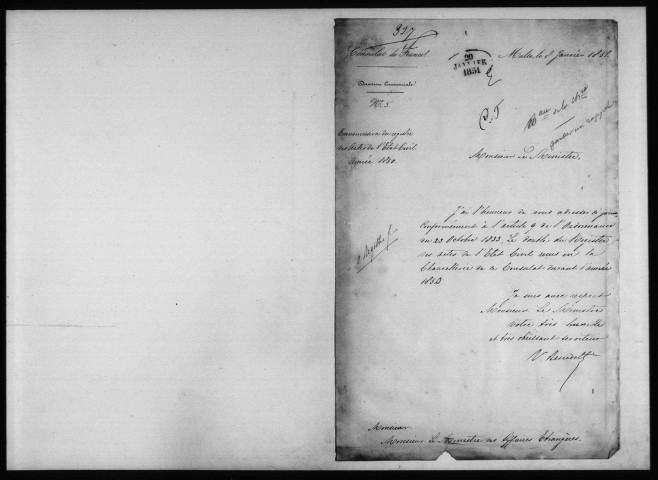 337
Consulat de France
20
JANVIER
1851
Malte, le 8 Janvier 1851.
Direction Commerciale
No. 5.
Bau de la
Transmission du registre
des Actes de l'Etat Civil.
Année 1850.
Monsieur Le Ministre,
J'ai l'honneur de vous adresser ci-joint,
Conformément à l'article 9 de l'Ordonnance
du 23 Octobre 1833, Le double du Registre
des actes de l'Etat Civil tenus en la
Chancellerie de ce Consulat durant l'année
1850
Je suis avec respect
Monsieur Le Ministre
votre très humble
et très obéissant serviteur
Monsieur
Monsieur Le Ministre des Affaires Etrangères.